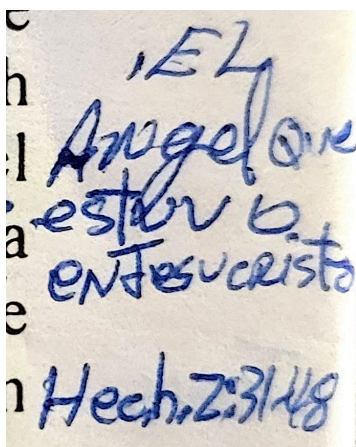 .EL
Angel Que
estuv o
en Jesucristo
Hech. 2:31-48